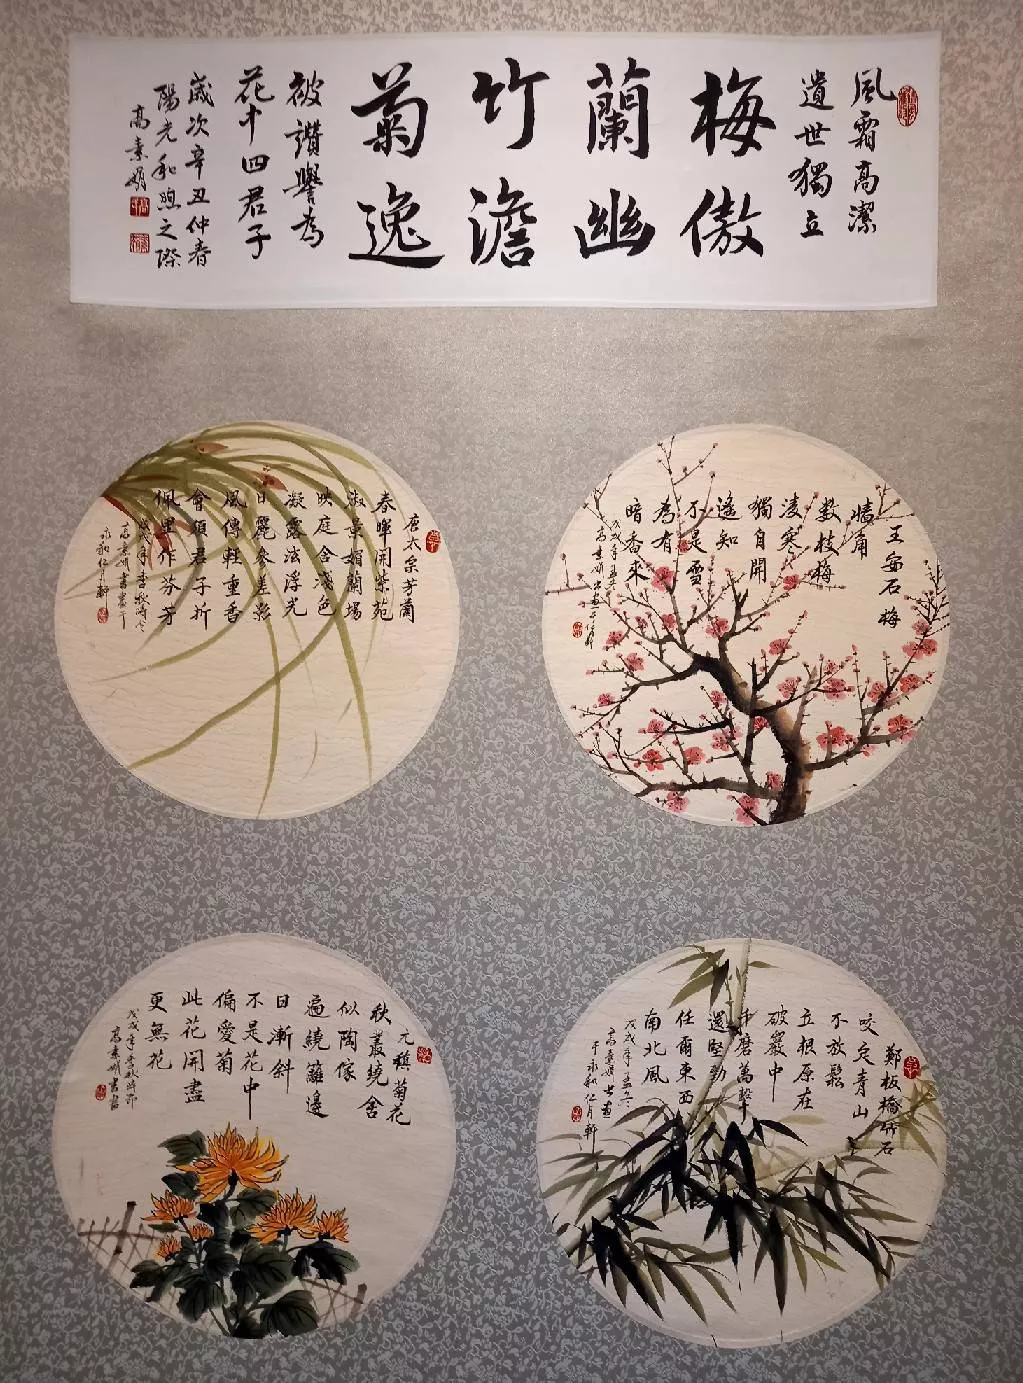 風霜高潔
遺世獨立
梅傲
蘭幽
竹澹
菊逸
被讚譽為
花中四君子
歲次辛丑仲春
陽光和煦之際
高素娟
王安石梅
牆角
數枝梅
凌寒
獨自開
遙知
不是雪
為有
暗香來
唐太宗芳蘭
春暉開紫苑
淑景媚蘭場
映庭含淺色
凝露泫浮光
日麗參差影
風傳輕重香
會須君子折
佩里作芬芳
鄭板橋竹石
咬定青山
不放鬆
立根原在
破巖中
千磨萬擊
還堅勁
任爾東西
南北風
戊戌年孟冬
高素娟書畫
于永和仁月軒
元稹菊花
秋叢繞舍
似陶傢
遍繞籬邊
日漸斜
不是花中
偏愛菊
此花開盡
更無花